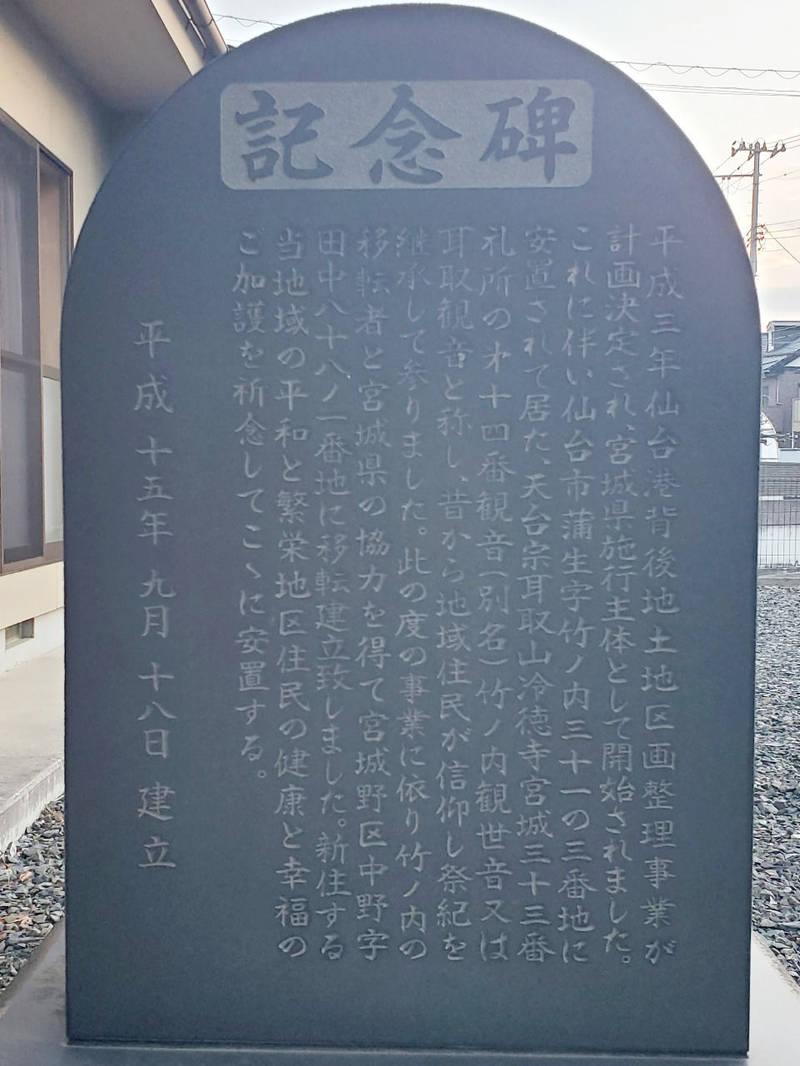 記念碑
平成三年仙台港背後地土地区画整理事業が
計画決定され、宮城県施行主体として開始されました。
これに伴い仙台市蒲生字竹ノ内三十一の三番地に
安置されて居た、天台宗耳取山冷徳寺宮城三十三番
札所の㐧十四番観音(別名)竹ノ内観世音又は
耳取観音と称し、昔から地域住民が信仰し祭紀を
継承して参りました。此の度の事業に依り竹ノ内の
移転者と宮城県の協力を得て宮城野区中野字
田中八十八ノ一番地に移転建立致しました。新住する
当地域の平和と繁栄地区住民の健康と幸福の
ご加護を祈念してこゝに安置する。
平成十五年九月十八日建立